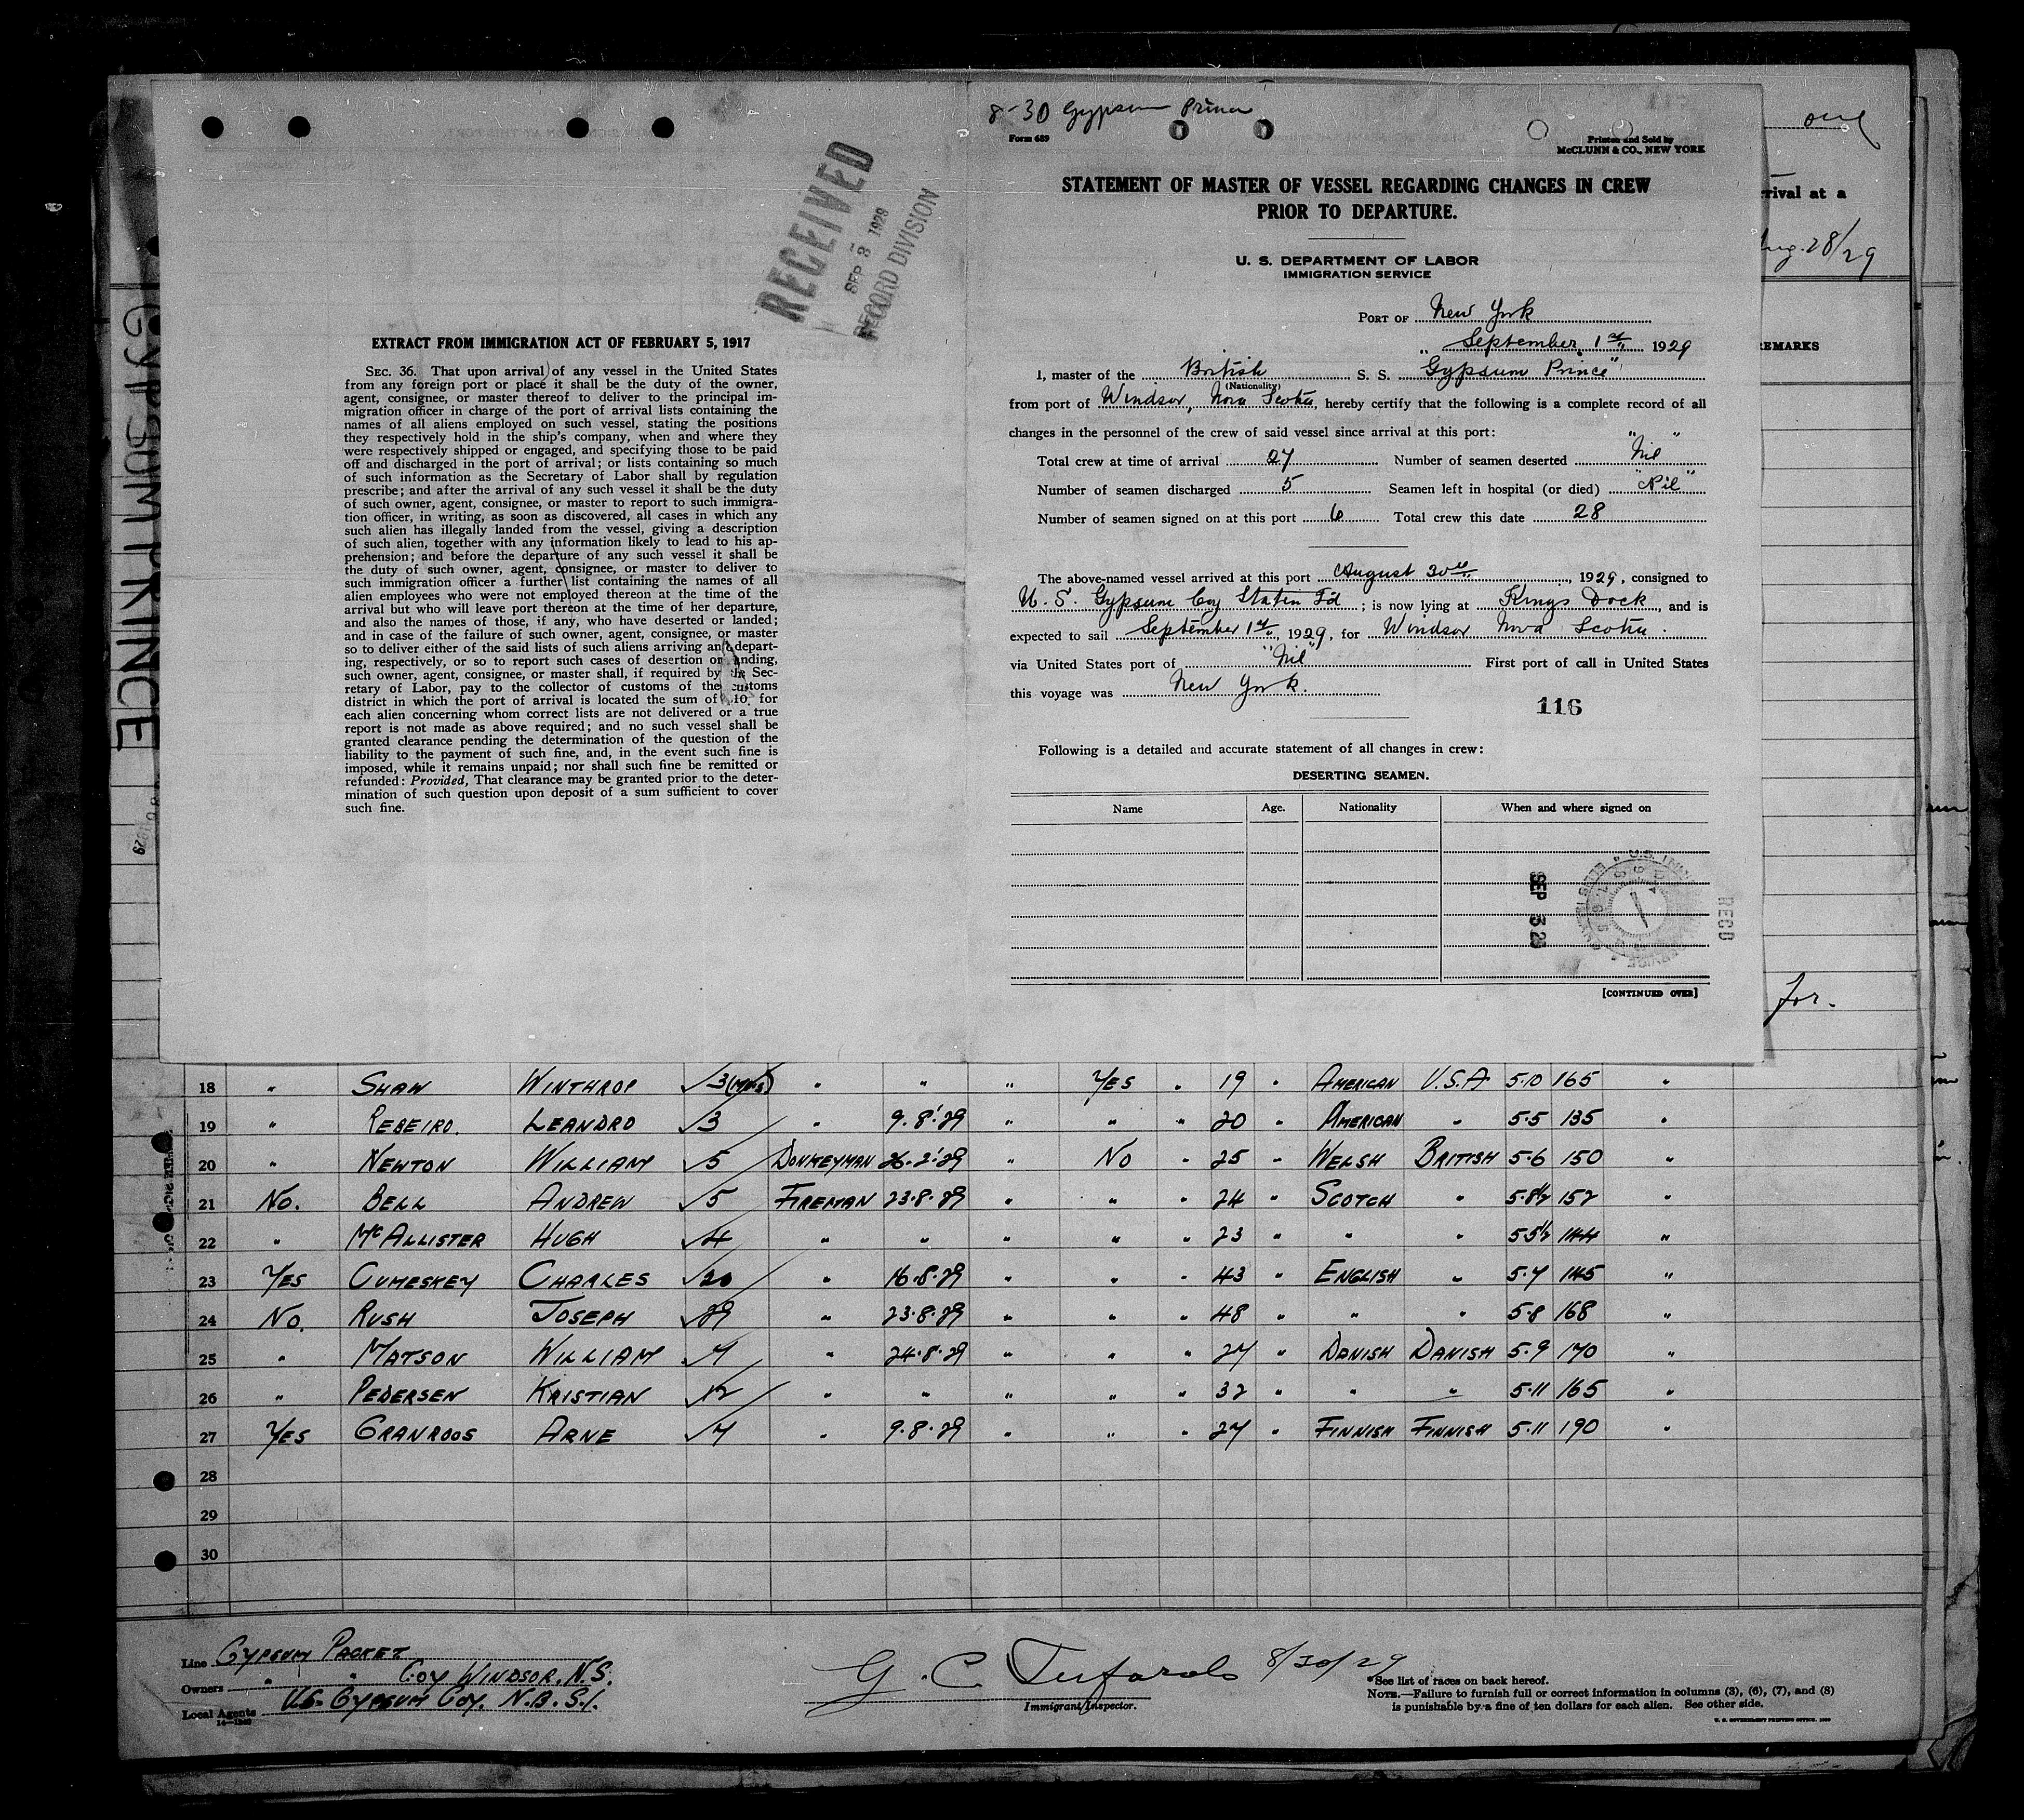 8-30 Gypsum Prince
Form 689
Printed and Sold by
McCLUNN & CO., NEW YORK
STATEMENT OF MASTER OF VESSEL REGARDING CHANGES IN CREW
PRIOR TO DEPARTURE.
U. S. DEPARTMENT OF LABOR
IMMIGRATION SERVICE
PORT OF New York
September 1st, 1929
I, master of the British S. S. "Gypsum Prince"
(Nationality)
from port of Windsor, Nova Scotia, hereby certify that the following is a complete record of all
changes in the personnel of the crew of said vessel since arrival at this port:
Total crew at time of arrival 27 Number of seamen deserted "Nil"
Number of seamen discharged 5 Seamen left in hospital (or died) "Nil"
Number of seamen signed on at this port 6 Total crew this date 28
The above-named vessel arrived at this port August 30th, 1929, consigned to
U. S. Gypsum Coy Staten Id; is now lying at Kings Dock, and is
expected to sail September 1st, 1929, for Windsor Nova Scotia.
via United States port of "Nil" First port of call in United States
this voyage was New York.
116
Following is a detailed and accurate statement of all changes in crew:
DESERTING SEAMEN.
Name Age. Nationality When and where signed on
SEP 3 29
RECD
[CONTINUED OVER]
RECEIVED
SEP 3 1929
RECORD DIVISION
EXTRACT FROM IMMIGRATION ACT OF FEBRUARY 5, 1917
SEC. 36. That upon arrival of any vessel in the United States
from any foreign port or place it shall be the duty of the owner,
agent, consignee, or master thereof to deliver to the principal im-
migration officer in charge of the port of arrival lists containing the
names of all aliens employed on such vessel, stating the positions
they respectively hold in the ship's company, when and where they
were respectively shipped or engaged, and specifying those to be paid
off and discharged in the port of arrival; or lists containing so much
of such information as the Secretary of Labor shall by regulation
prescribe; and after the arrival of any such vessel it shall be the duty
of such owner, agent, consignee, or master to report to such immigra-
tion officer, in writing, as soon as discovered, all cases in which any
such alien has illegally landed from the vessel, giving a description
of such alien, together with any information likely to lead to his ap-
prehension; and before the departure of any such vessel it shall be
the duty of such owner, agent, consignee, or master to deliver to
such immigration officer a further list containing the names of all
alien employees who were not employed thereon at the time of the
arrival but who will leave port thereon at the time of her departure,
and also the names of those, if any, who have deserted or landed;
and in case of the failure of such owner, agent, consignee, or master
so to deliver either of the said lists of such aliens arriving and depart-
ing, respectively, or so to report such cases of desertion or landing,
such owner, agent, consignee, or master shall, if required by the Sec-
retary of Labor, pay to the collector of customs of the customs
district in which the port of arrival is located the sum of $10 for
each alien concerning whom correct lists are not delivered or a true
report is not made as above required; and no such vessel shall be
granted clearance pending the determination of the question of the
liability to the payment of such fine, and, in the event such fine is
imposed, while it remains unpaid; nor shall such fine be remitted or
refunded: Provided, That clearance may be granted prior to the deter-
mination of such question upon deposit of a sum sufficient to cover
such fine.
GYPSUM PRINCE
one
rrival at a
Aug. 28/29
REMARKS
for.
18 " SHAW WINTHROP 3(MOS) " " " YES " 19 " AMERICAN U.S.A 5·10 165 "
19 " REBEIRO. LEANDRO 3 " 9.8.29 " " " 20 " AMERICAN " 5·5 135 "
20 " NEWTON WILLIAM 5 DONKEYMAN 26.2.29 " NO " 25 " WELSH BRITISH 5·6 150 "
21 NO. BELL ANDREW 5 FIREMAN 23.8.29 " " " 24 " SCOTCH " 5·8½ 152 "
22 " McALLISTER HUGH 4 " " " " " 23 " " " 5·5½ 144 "
23 YES CUMESKEY CHARLES 20 " 16.8.29 " " " 43 " ENGLISH " 5·7 145 "
24 NO. RUSH JOSEPH 29 " 23.8.29 " " " 48 " " " 5·8 168 "
25 " MATSON WILLIAM 7 " 24.8.29 " " " 27 " DANISH DANISH 5·9 170 "
26 " PEDERSEN KRISTIAN 12 " " " " " 32 " " " 5·11 165 "
27 YES GRANROOS ARNE 7 " 9.8.29 " " " 27 " FINNISH FINNISH 5·11 190 "
28
29
30
Line GYPSUM PACKET
Owners " " COY WINDSOR. N.S.
Local Agents U.S. GYPSUM COY. N.B. S.I.
14—1240
8/30/29
Immigrant Inspector.
*See list of races on back hereof.
NOTE.—Failure to furnish full or correct information in columns (3), (6), (7), and (8)
is punishable by a fine of ten dollars for each alien. See other side.